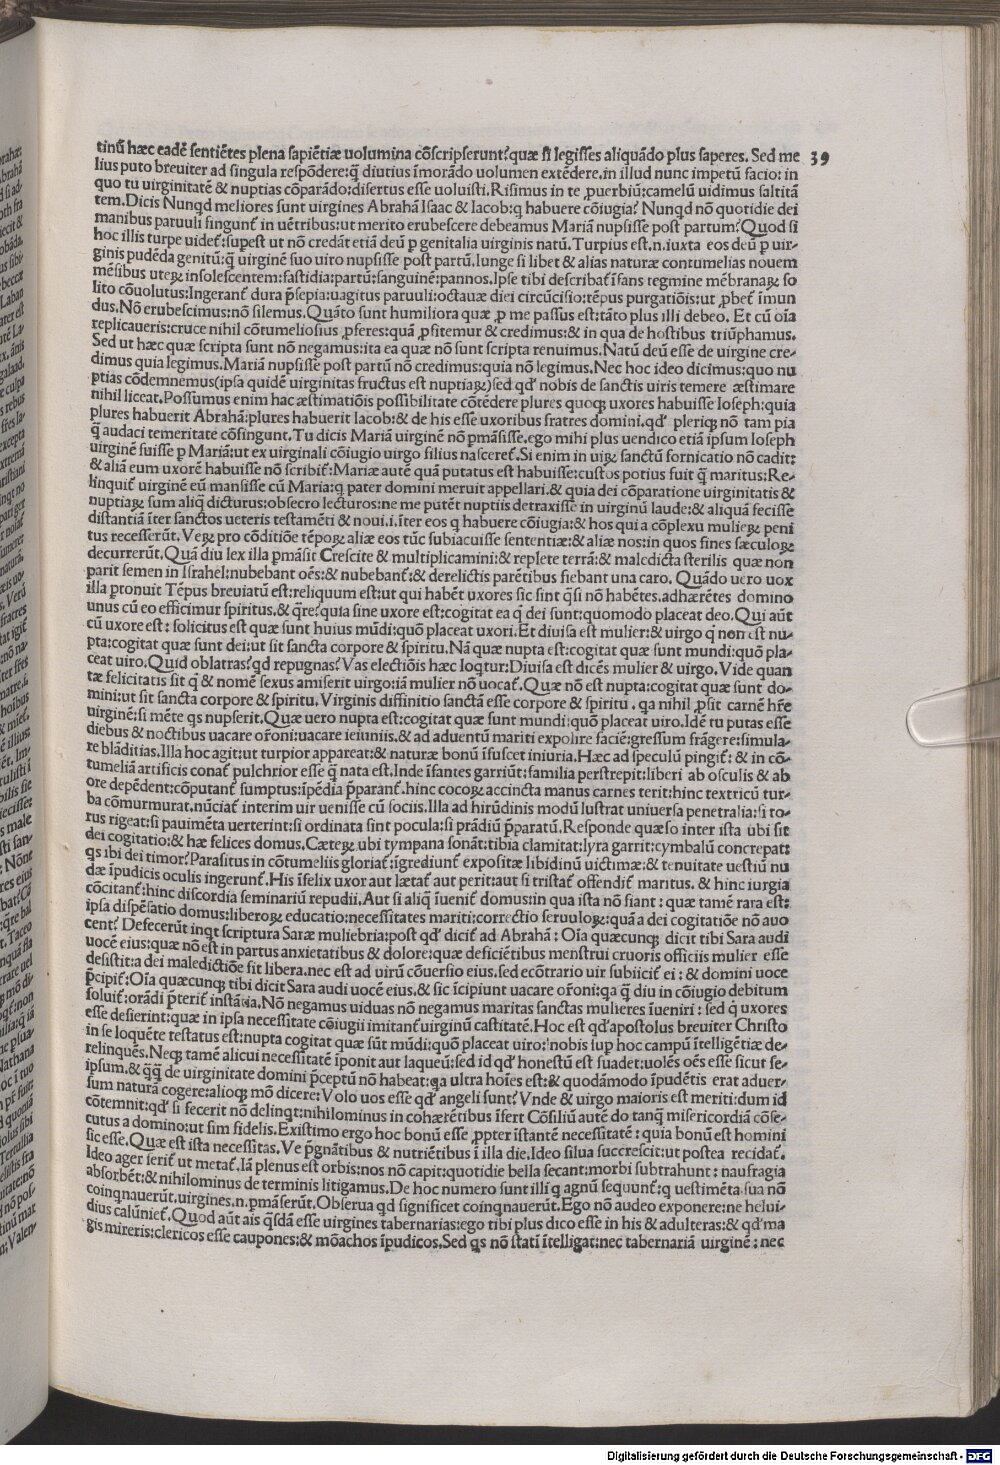 tinū hæc eadē sentiētes plena sapiētiæ uolumina cōscripserunt? quæ si legisses aliquādo plus saperes. Sed me 39
lius puto breuiter ad singula respōdere: q̄ diutius īmorādo uolumen extēdere. in illud nunc impetū facio: in
quo tu uirginitatē & nuptias cōparādo: disertus esse uoluisti. Risimus in te ꝓuerbiū: camelū uidimus saltitā
tem. Dicis Nunqd meliores sunt uirgines Abrahā Isaac & Iacob: q habuere cōiugia? Nunqd nō quotidie dei
manibus paruuli fingunt̄ in uētribus: ut merito erubescere debeamus Mariā nupsisse post partum? Quod si
hoc illis turpe uidet̄: supest ut nō credāt etiā deū p genitalia uirginis natū. Turpius est. n. iuxta eos deū p uir-
ginis pudēda genitū: q̄ uirginē suo uiro nupsisse post partū. Iunge si libet & alias naturæ contumelias nouem
mēsibus uteꝝ insolescentem: fastidia: partū: sanguinē: pannos. Ipse tibi describat̄ īfans tegmine mēbranaꝝ so
lito cōuolutus: Ingerant̄ dura p̄sepia: uagitus paruuli: octauæ diei circūcisio: tēpus purgatiōis: ut ꝓbet̄ īmun
dus. Nō erubescimus: nō silemus. Quāto sunt humiliora quæ ꝓ me passus est: tāto plus illi debeo. Et cū oīa
replicaueris: cruce nihil cōtumeliosius ꝓferes: quā ꝓfitemur & credimus: & in qua de hostibus triūphamus.
Sed ut hæc quæ scripta sunt nō negamus: ita ea quæ nō sunt scripta renuimus. Natū deū esse de uirgine cre-
dimus quia legimus. Mariā nupsisse post partū nō credimus: quia nō legimus. Nec hoc ideo dicimus: quo nu
ptias cōdemnemus (ipsa quidē uirginitas fructus est nuptiaꝝ) sed qd' nobis de sanctis uiris temere æstimare
nihil liceat. Possumus enim hac æstimatiōis possibilitate cōtēdere plures quoqꝫ uxores habuisse Ioseph: quia
plures habuerit Abrahā: plures habuerit Iacob: & de his esse uxoribus fratres domini. qd' pleriqꝫ nō tam pia
q̄ audaci temeritate cōfingunt. Tu dicis Mariā uirginē nō pmāsisse. ego mihi plus uendico etiā ipsum Ioseph
uirginē fuisse p Mariā: ut ex uirginali cōiugio uirgo filius nasceret̄. Si enim in uiꝝ sanctū fornicatio nō cadit:
& aliā eum uxorē habuisse nō scribit̄: Mariæ autē quā putatus est habuisse: custos potius fuit q̄ maritus: Re-
linquit̄ uirginē eū mansisse cū Maria: q pater domini meruit appellari. & quia dei cōparatione uirginitatis &
nuptiaꝝ sum aliq̄ dicturus: obsecro lecturos: ne me putēt nuptiis detraxisse in uirginū laude: & aliquā fecisse
distantiā īter sanctos ueteris testamēti & noui. i. īter eos q habuere cōiugia: & hos qui a cōplexu mulieꝝ peni
tus recesserūt. Veꝝ pro cōditiōe tēpoꝝ aliæ eos tūc subiacuisse sententiæ: & aliæ nos: in quos fines sæculoꝝ
decurrerūt. Quā diu lex illa pmāsit Crescite & multiplicamini: & replete terrā: & maledicta sterilis quæ non
parit semen in Israhel: nubebant oēs: & nubebant̄: & derelictis parētibus fiebant una caro. Quādo uero uox
illa ptonuit Tēpus breuiatū est: reliquum est: ut qui habēt uxores sic sint q̄si nō habētes. adhærētes domino
unus cū eo efficimur spiritus. & q̄re? quia sine uxore est: cogitat ea q̄ dei sunt: quomodo placeat deo. Qui aūt
cū uxore est: solicitus est quæ sunt huius mūdi: quō placeat uxori. Et diuisa est mulier: & uirgo q̄ non est nu-
pta: cogitat quæ sunt dei: ut sit sancta corpore & spiritu. Nā quæ nupta est: cogitat quæ sunt mundi: quō pla-
ceat uiro. Quid oblatras? qd repugnas? Vas electiōis hæc loq̄tur: Diuisa est dicēs mulier & uirgo. Vide quan
tæ felicitatis sit q̄ & nomē sexus amiserit uirgo: iā mulier nō uocat̄. Quæ nō est nupta: cogitat quæ sunt do-
mini: ut sit sancta corpore & spiritu. Virginis diffinitio sanctā esse corpore & spiritu. qa nihil ꝓsit carnē hr̄e
uirginē: si mēte qs nupserit. Quæ uero nupta est: cogitat quæ sunt mundi: quō placeat uiro. Idē tu putas esse
diebus & noctibus uacare or̄oni: uacare ieiuniis. & ad aduentū mariti expolire faciē: gressum frāgere: simula-
re blāditias. Illa hoc agit: ut turpior appareat: & naturæ bonū īfuscet iniuria. Hæc ad speculū pingit̄: & in cō-
tumeliā artificis conat̄ pulchrior esse q̄ nata est. Inde īfantes garriūt: familia perstrepit: liberi ab osculis & ab
ore depēdent: cōputant̄ sumptus: īpēdia p̄parant̄. hinc cocoꝝ accincta manus carnes terit: hinc textricū tur-
ba cōmurmurat. nūciat̄ interim uir uenisse cū sociis. Illa ad hirūdinis modū lustrat uniuersa penetralia: si to-
rus rigeat: si pauimēta uerterint: si ordinata sint pocula: si prādiū p̄paratū. Responde quæso inter ista ubi sit
dei cogitatio: & hæ felices domus. Cæteꝝ ubi tympana sonāt: tibia clamitat: lyra garrit: cymbalū concrepat:
qs ibi dei timor? Parasitus in cōtumeliis gloriat̄: īgrediunt̄ expositæ libidinū uictimæ: & tenuitate uestiū nu
dæ īpudicis oculis ingerunt̄. His īfelix uxor aut lætat̄ aut perit: aut si tristat̄ offendit̄ maritus. & hinc iurgia
cōcitant̄: hinc discordia seminariū repudii. Aut si aliq̄ īuenit̄ domus: in qua ista nō fiant: quæ tamē rara est:
ipsa dispēsatio domus: liberoꝝ educatio: necessitates mariti: correctio seruuloꝝ: quā a dei cogitatiōe nō auo
cent? Defecerūt inq̄t scriptura Saræ muliebria: post qd' dicit̄ ad Abrahā: Oīa quæcunqꝫ dicit tibi Sara audi
uocē eius: quæ nō est in partus anxietatibus & dolore: quæ deficiētibus menstrui cruoris officiis mulier esse
desistit: a dei maledictiōe fit libera. nec est ad uirū cōuersio eius. sed ecōtrario uir subiicit̄ ei: & domini uoce
p̄cipit̄: Oīa quæcunqꝫ tibi dicit Sara audi uocē eius. & sic īcipiunt uacare or̄oni: qa q̄ diu in cōiugio debitum
soluit̄: orādi p̄terit̄ instātia. Nō negamus uiduas nō negamus maritas sanctas mulieres īueniri: sed q̄ uxores
esse desierint: quæ in ipsa necessitate cōiugii imitant̄ uirginū castitatē. Hoc est qd' apostolus breuiter Christo
in se loquēte testatus est: nupta cogitat quæ sūt mūdi: quō placeat uiro: nobis sup hoc campū ītelligētiæ de-
relinquēs. Neqꝫ tamē alicui necessitatē īponit aut laqueū: sed id qd' honestū est suadet: uolēs oēs esse sicut se-
ipsum. & q̄q̄ de uirginitate domini p̄ceptū nō habeat: qa ultra hoīes est: & quodāmodo īpudētis erat aduer-
sum naturā cogere: alioqꝫ mō dicere: Volo uos esse qd' angeli sunt? Vnde & uirgo maioris est meriti: dum id
cōtemnit: qd' si fecerit nō delinqt: nihilominus in cohærētibus īfert Cōsiliū autē do tanq̄ misericordiā cōse-
cutus a domino: ut sim fidelis. Existimo ergo hoc bonū esse ꝓpter īstantē necessitatē: quia bonū est homini
sic esse. Quæ est ista necessitas. Ve p̄gnātibus & nutriētibus ī illa die. Ideo silua succrescit: ut postea recidat̄.
Ideo ager serit̄ ut metat̄. Iā plenus est orbis: nos nō capit: quotidie bella secant: morbi subtrahunt: naufragia
absorbēt: & nihilominus de terminis litigamus. De hoc numero sunt illi q agnū sequunt̄: q uestimēta sua nō
coinqnauerūt. uirgines. n. pmāserūt. Obserua qd significet coinqnauerūt. Ego nō audeo exponere: ne helui-
dius calūniet̄. Quod aūt ais q̄sdā esse uirgines tabernarias: ego tibi plus dico esse in his & adulteras: & qd' ma
gis mireris: clericos esse caupones: & mōachos īpudicos. Sed qs nō statī ītelligat: nec tabernariā uirginē: nec
Digitalisierung gefördert durch die Deutsche Forschungsgemeinschaft - DFG